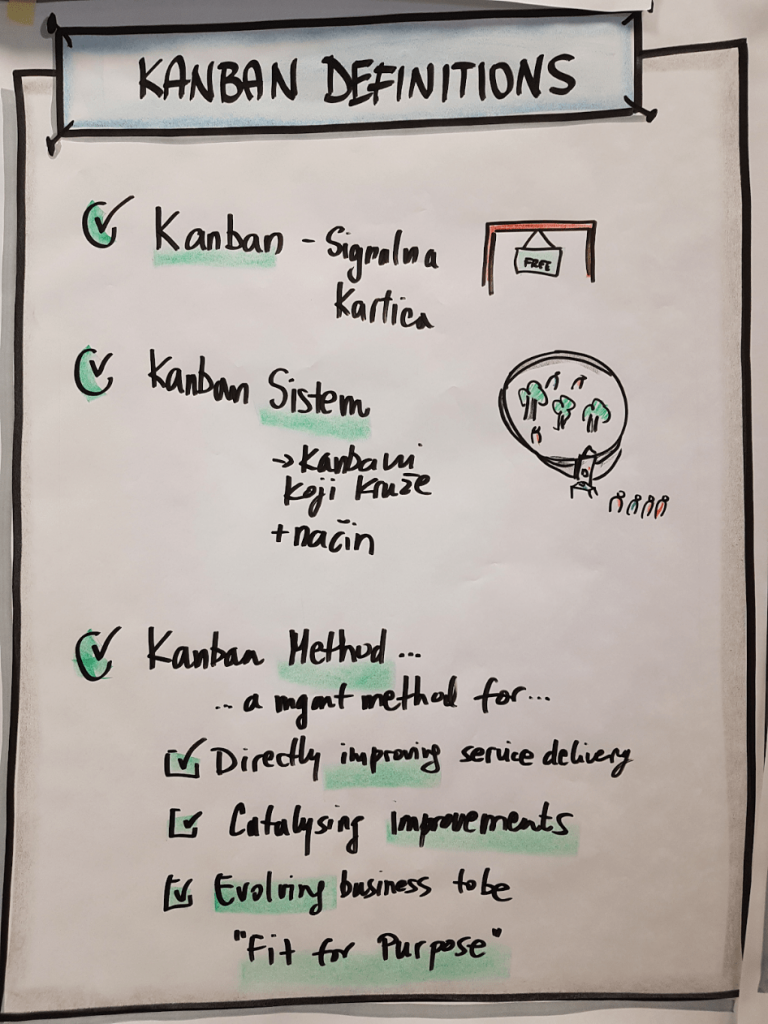 KANBAN DEFINITIONS
Kanban - Signalna
FREE
Kartica
Kanban Sistem
→ Kanbani
koji kruže
+ način
Kanban Method ...
... a mgmt method for ...
Directly improving service delivery
Catalysing improvements
Evolving business to be
"Fit for Purpose"